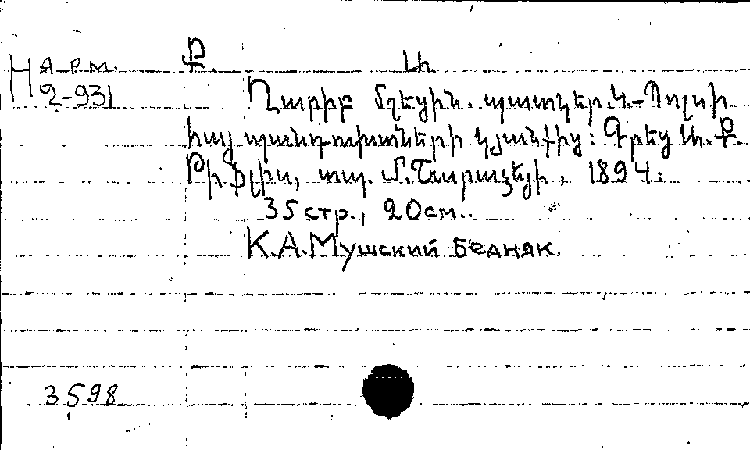 Н арм. Ք. Մ.
2-931
Ղարիբ մշեցին. պատկեր Կ-Պոլսի
հայ պանդուխտների կյանքից: Գրեց Մ. Ք.
Թիֆլիս, տպ. Մ. Շարաձեյի, 1894.
35 стр., 20 см.
К.А.Мушский бедняк.
3598